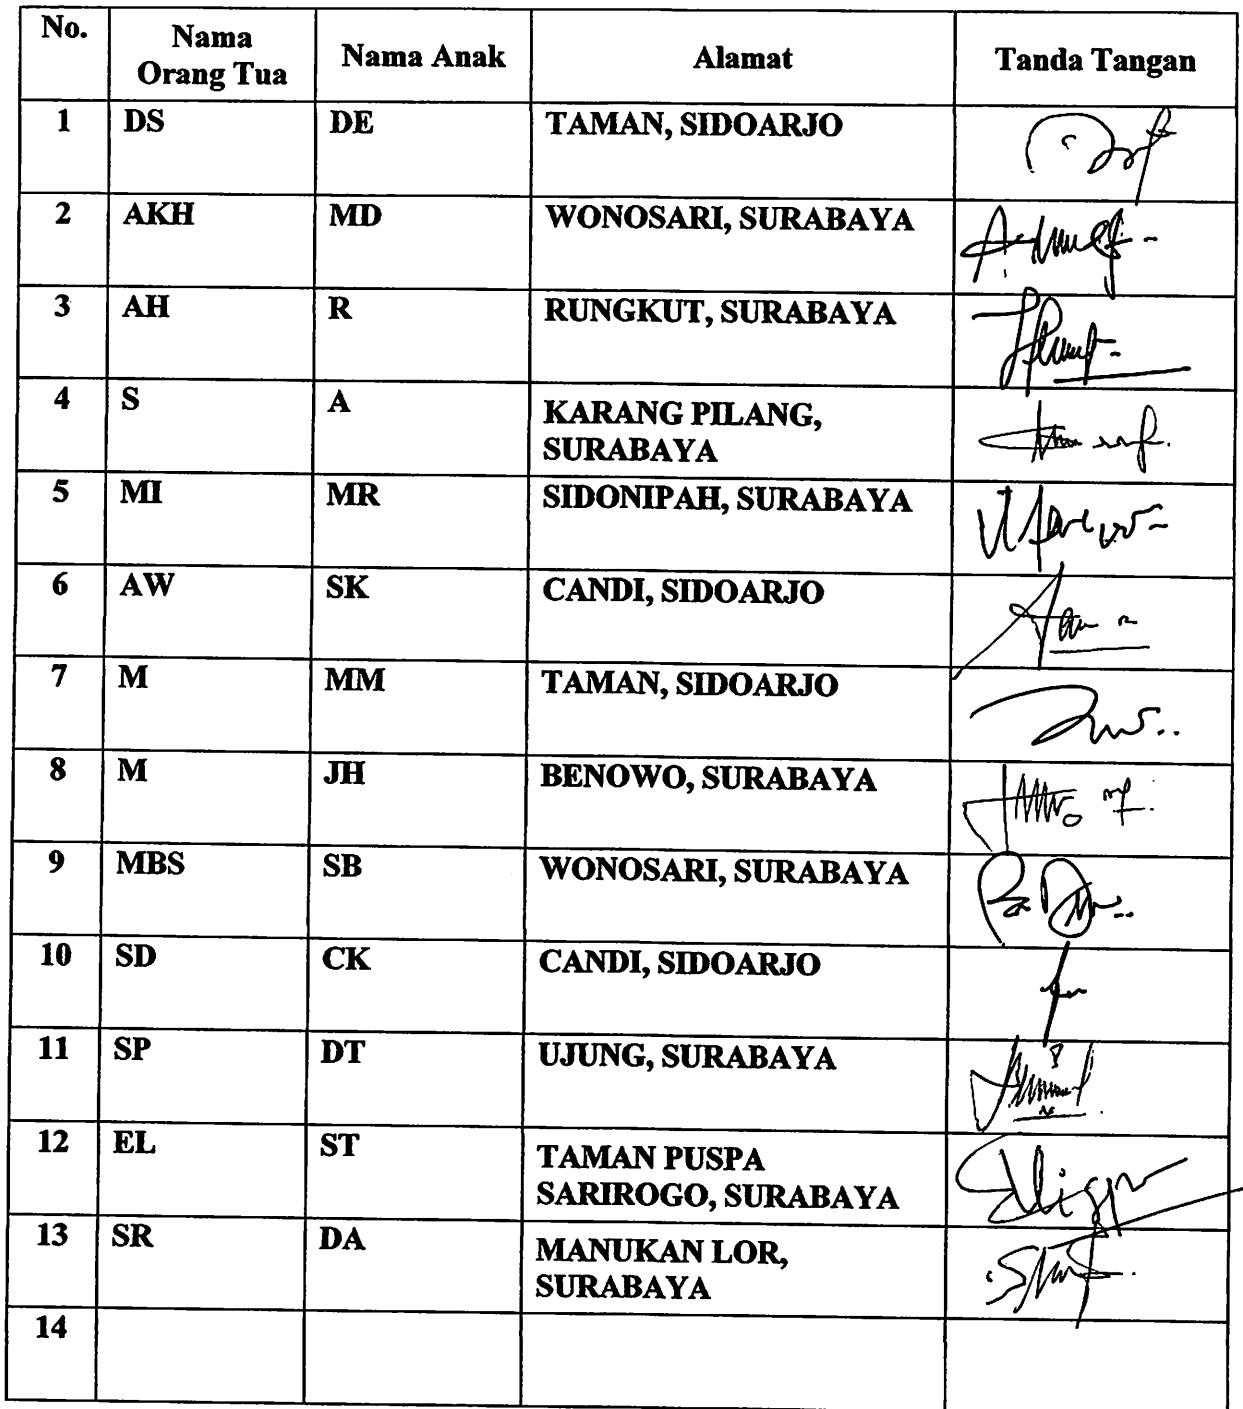 No. Nama Orang Tua Nama Anak Alamat Tanda Tangan
1 DS DE TAMAN, SIDOARJO
2 AKH MD WONOSARI, SURABAYA
3 AH R RUNGKUT, SURABAYA
4 S A KARANG PILANG,
SURABAYA
5 MI MR SIDONIPAH, SURABAYA
6 AW SK CANDI, SIDOARJO
7 M MM TAMAN, SIDOARJO
8 M JH BENOWO, SURABAYA
9 MBS SB WONOSARI, SURABAYA
10 SD CK CANDI, SIDOARJO
11 SP DT UJUNG, SURABAYA
12 EL ST TAMAN PUSPA
SARIROGO, SURABAYA
13 SR DA MANUKAN LOR,
SURABAYA
14